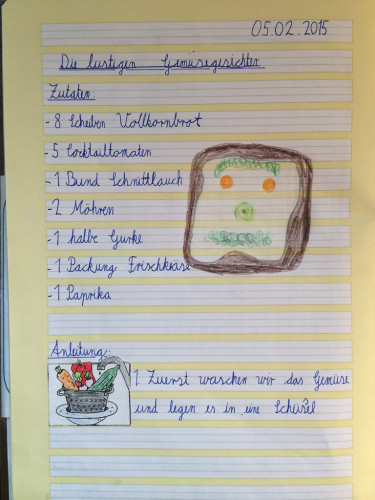 05.02.2015
Die lustigen Gemüsegesichter
Zutaten:
- 8 Scheiben Vollkornbrot
- 5 Cocktailtomaten
- 1 Bund Schnittlauch
- 2 Möhren
- 1 halbe Gurke
- 1 Packung Frischkäse
- 1 Paprika
Anleitung:
1. Zuerst waschen wir das Gemüse
und legen es in eine Schüssel.